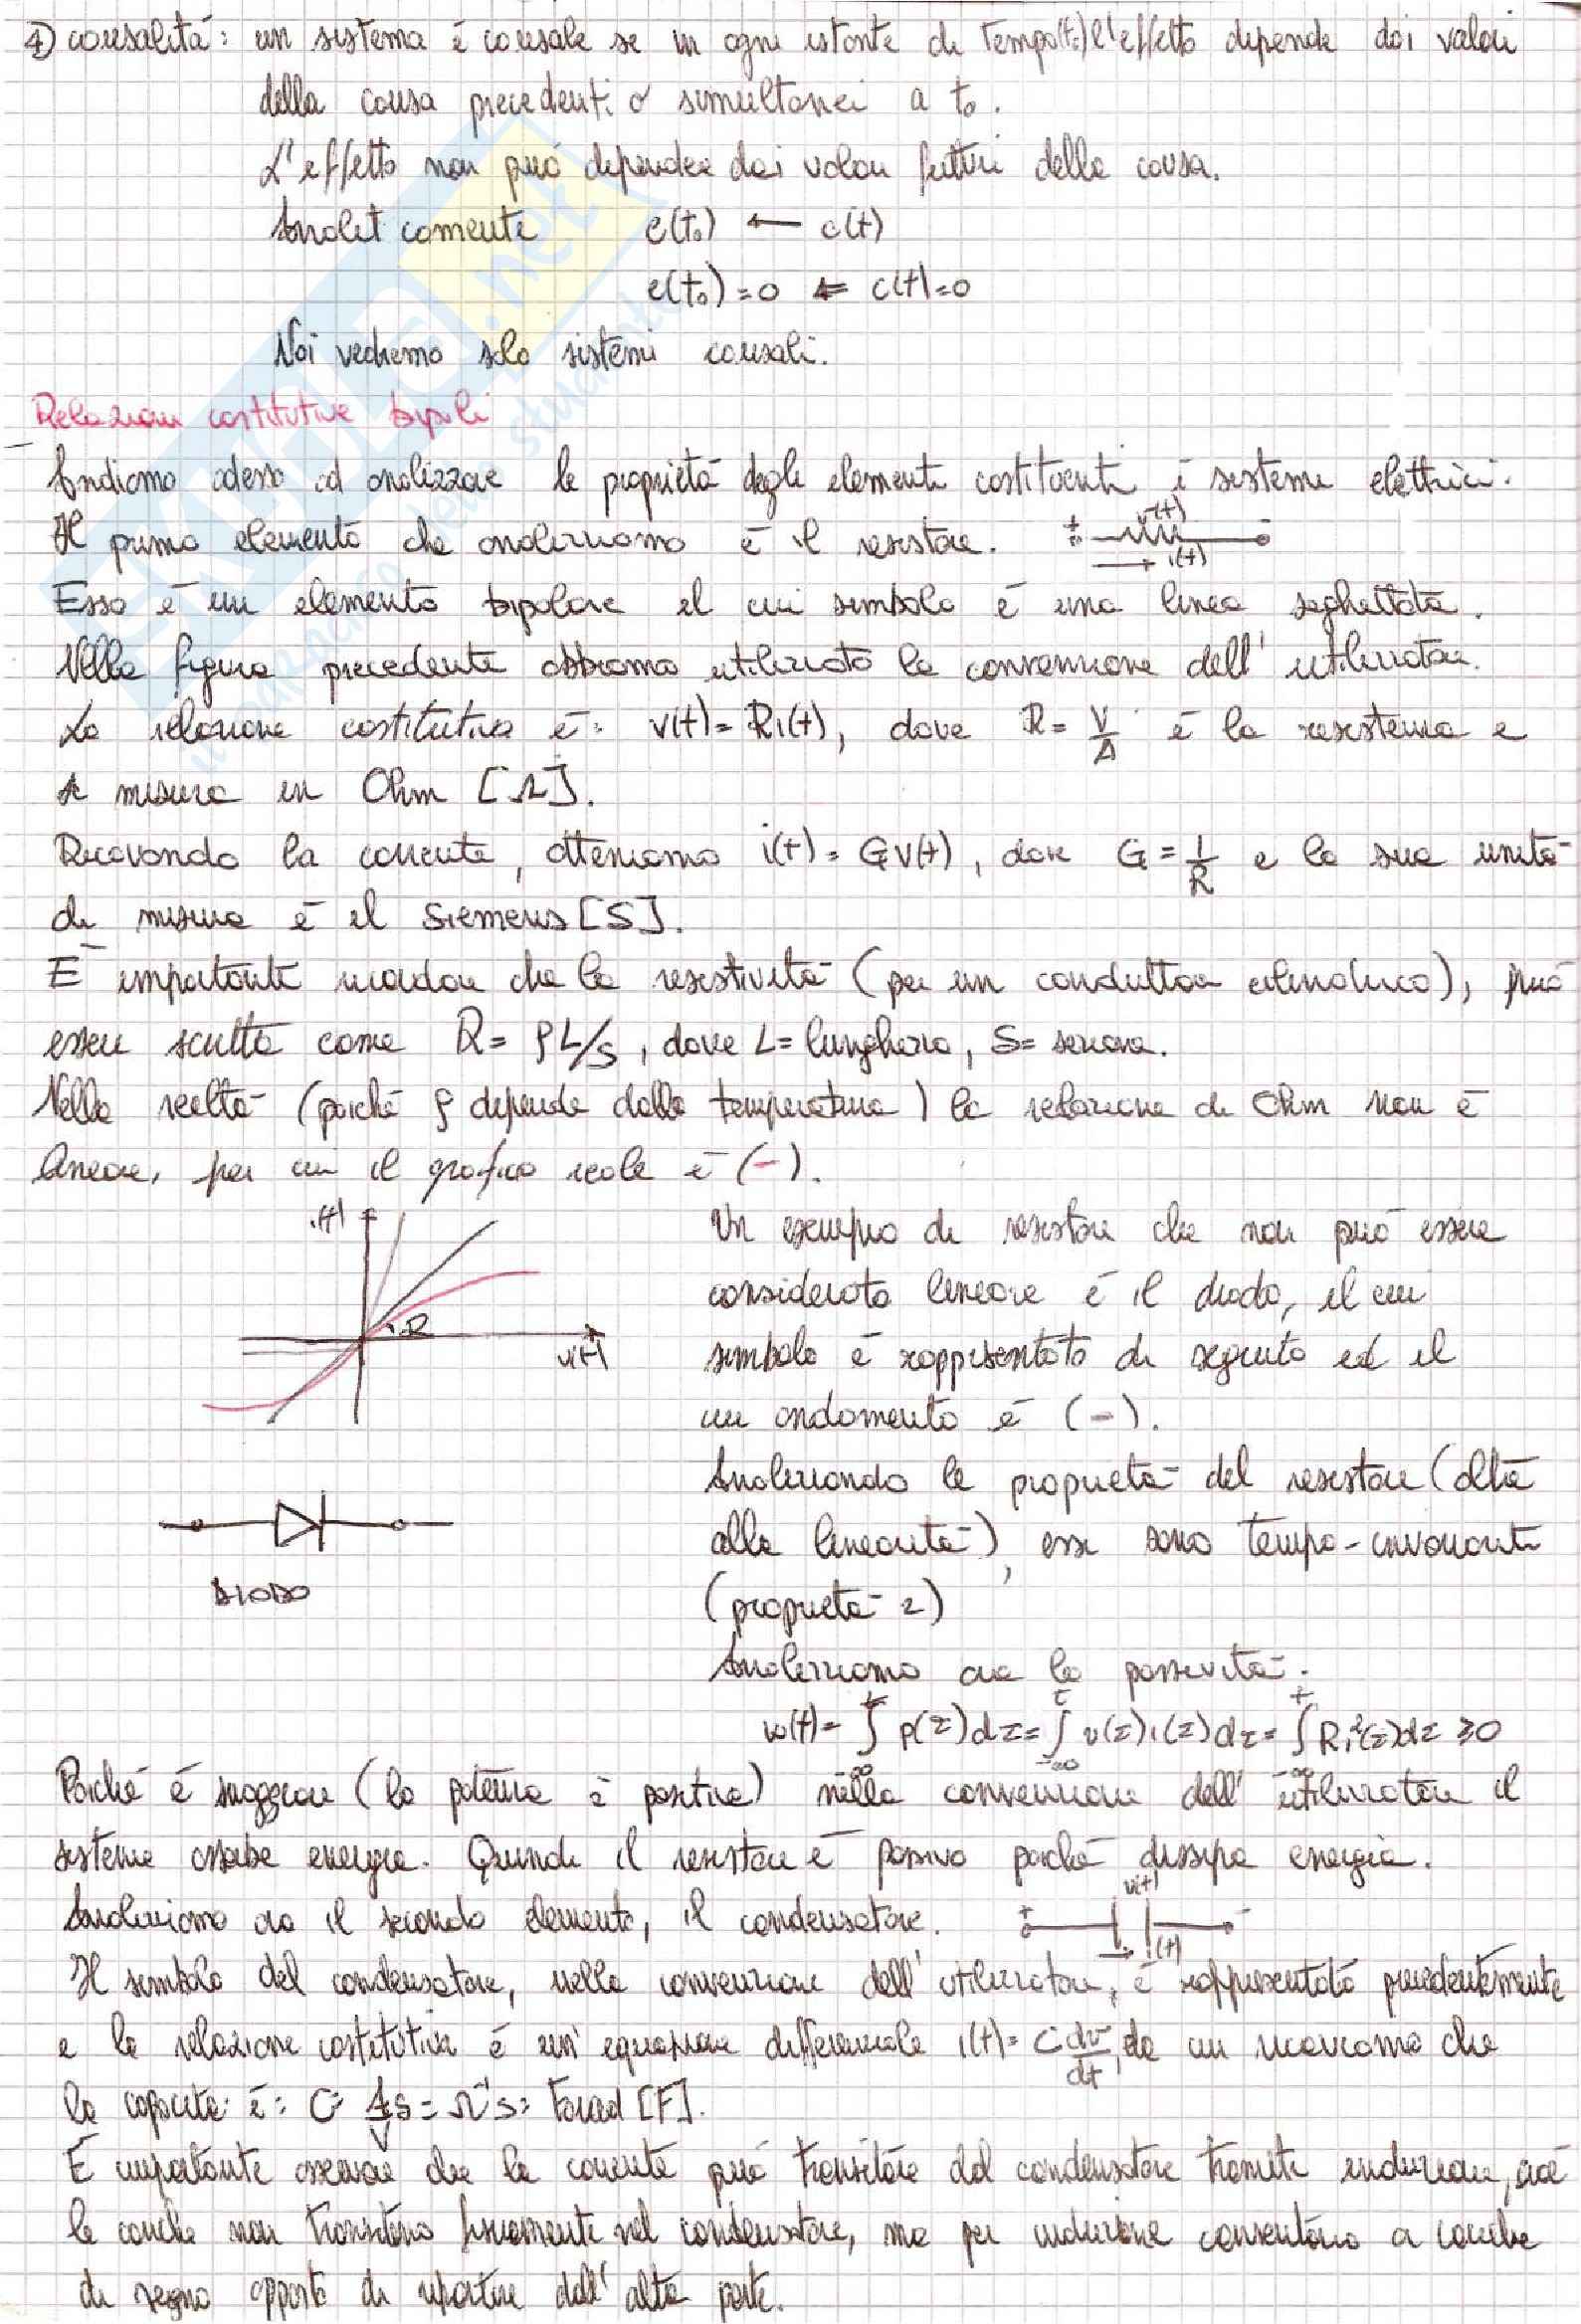 4) causalità: un sistema è causale se in ogni istante di tempo (t₀) l'effetto dipende dai valori
della causa precedenti o simultanei a t₀.
L'effetto non può dipendere dai valori futuri della causa.
Analiticamente e(t₀) ← c(t)
e(t₀)=0 ⇐ c(t)=0
Noi vedremo solo sistemi causali.
Relazioni costitutive bipoli
Andiamo adesso ad analizzare le proprietà degli elementi costituenti i sistemi elettrici.
Il primo elemento che analizziamo è il resistore. + v(t) - i(t)
Esso è un elemento bipolare il cui simbolo è una linea seghettata.
Nella figura precedente abbiamo utilizzato la convenzione dell'utilizzatore.
La relazione costitutiva è: v(t)=Ri(t), dove R=V/A è la resistenza e
si misura in Ohm [Ω].
Ricavando la corrente, otteniamo i(t)=Gv(t), dove G=1/R e la sua unità
di misura è il Siemens [S].
È importante ricordare che la resistività (per un conduttore cilindrico), può
essere scritta come R=ρL/S, dove L=lunghezza, S=sezione.
Nella realtà (poiché ρ dipende dalla temperatura) la relazione di Ohm non è
lineare, per cui il grafico reale è (-).
i(t)
R
v(t)
Un esempio di resistore che non può essere
considerato lineare è il diodo, il cui
simbolo è rappresentato di seguito ed il
cui andamento è (-).
Analizzando le proprietà del resistore (oltre
alla linearità), esse sono tempo-invarianti
(proprietà 2)
DIODO
Analizziamo ora la passività:
w(t)=∫_{-∞}^{t} p(τ)dτ=∫_{-∞}^{t} v(τ)i(τ)dτ=∫_{-∞}^{t} Ri²(τ)dτ ≥0
Poiché è maggiore (la potenza è positiva) nella convenzione dell'utilizzatore il
sistema assorbe energia. Quindi il resistore è passivo poiché dissipa energia.
Analizziamo ora il secondo elemento, il condensatore. + v(t) - i(t)
Il simbolo del condensatore, nella convenzione dell'utilizzatore, è rappresentato precedentemente
e la relazione costitutiva è un'equazione differenziale i(t)=C dv/dt, da cui ricaviamo che
la capacità è: C= As/V=Ω⁻¹s= Farad [F].
È importante osservare che la corrente può transitare dal condensatore tramite induzione, cioè
le cariche non transitano fisicamente nel condensatore, ma per induzione consentono a cariche
di segno opposto di ripartire dall'altra parte.